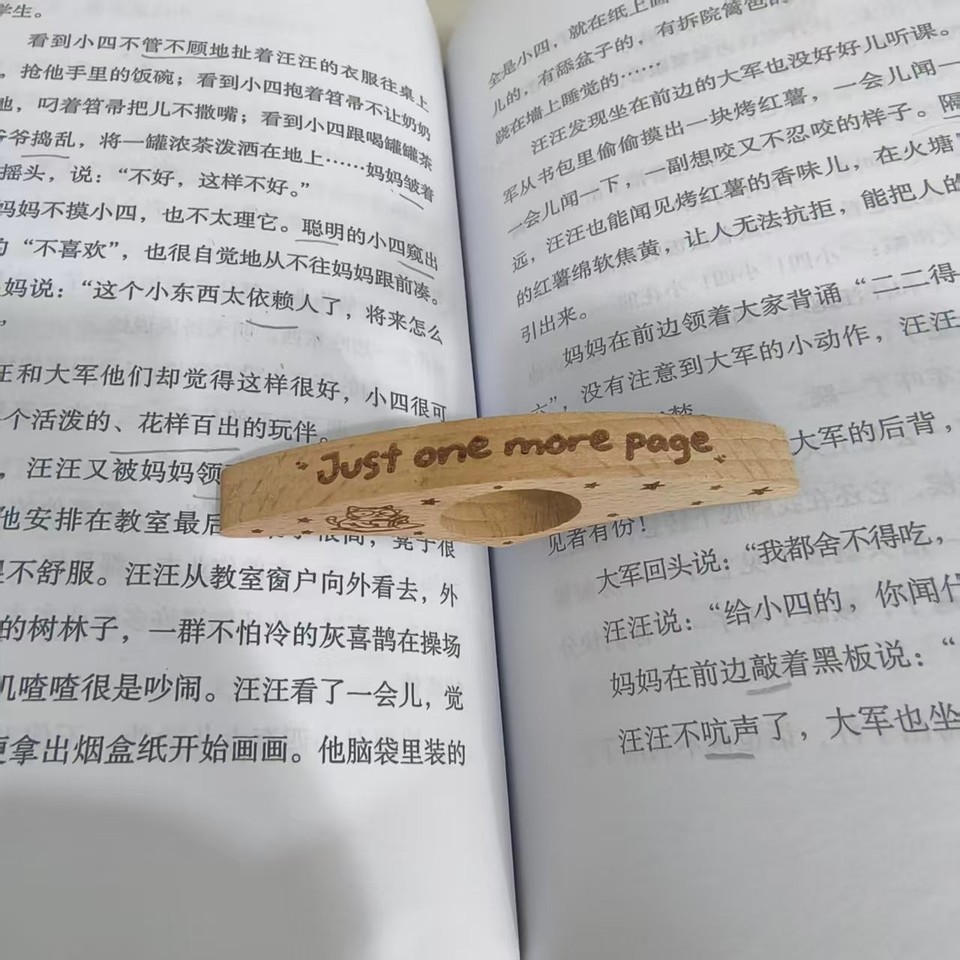 学生。
看到小四不管不顾地扯着汪汪的衣服往桌上
，抢他手里的饭碗；看到小四抱着笤帚不让奶奶
地，叼着笤帚把儿不撒嘴；看到小四跟喝罐罐茶
爷爷捣乱，将一罐浓茶泼洒在地上……妈妈皱着
摇头，说：“不好，这样不好。”
妈妈不摸小四，也不太理它。聪明的小四窥出
的“不喜欢”，也很自觉地从不往妈妈跟前凑。
妈说：“这个小东西太依赖人了，将来怎么
”
汪和大军他们却觉得这样很好，小四很可
个活泼的、花样百出的玩伴。
，汪汪又被妈妈领
他安排在教室最后
很高，凳子很
不舒服。汪汪从教室窗户向外看去，外
的树林子，一群不怕冷的灰喜鹊在操场
叽喳喳很是吵闹。汪汪看了一会儿，觉
更拿出烟盒纸开始画画。他脑袋里装的
全是小四，就在纸上画
儿的，有舔盆子的，有拆院篱笆的
晓在墙上睡觉的……
汪汪发现坐在前边的大军也没好好儿听课。
军从书包里偷偷摸出一块烤红薯，一会儿闻一
一会儿闻一下，一副想咬又不忍咬的样子。隔
远，汪汪也能闻见烤红薯的香味儿，在火塘
的红薯绵软焦黄，让人无法抗拒，能把人的
引出来。
妈妈在前边领着大家背诵“一二得
六”，没有注意到大军的小动作，汪汪
大军的后背，
见者有份！
大军回头说：“我都舍不得吃，
汪汪说：“给小四的，你闻什
妈妈在前边敲着黑板说：“
汪汪不吭声了，大军也坐
Just one more page